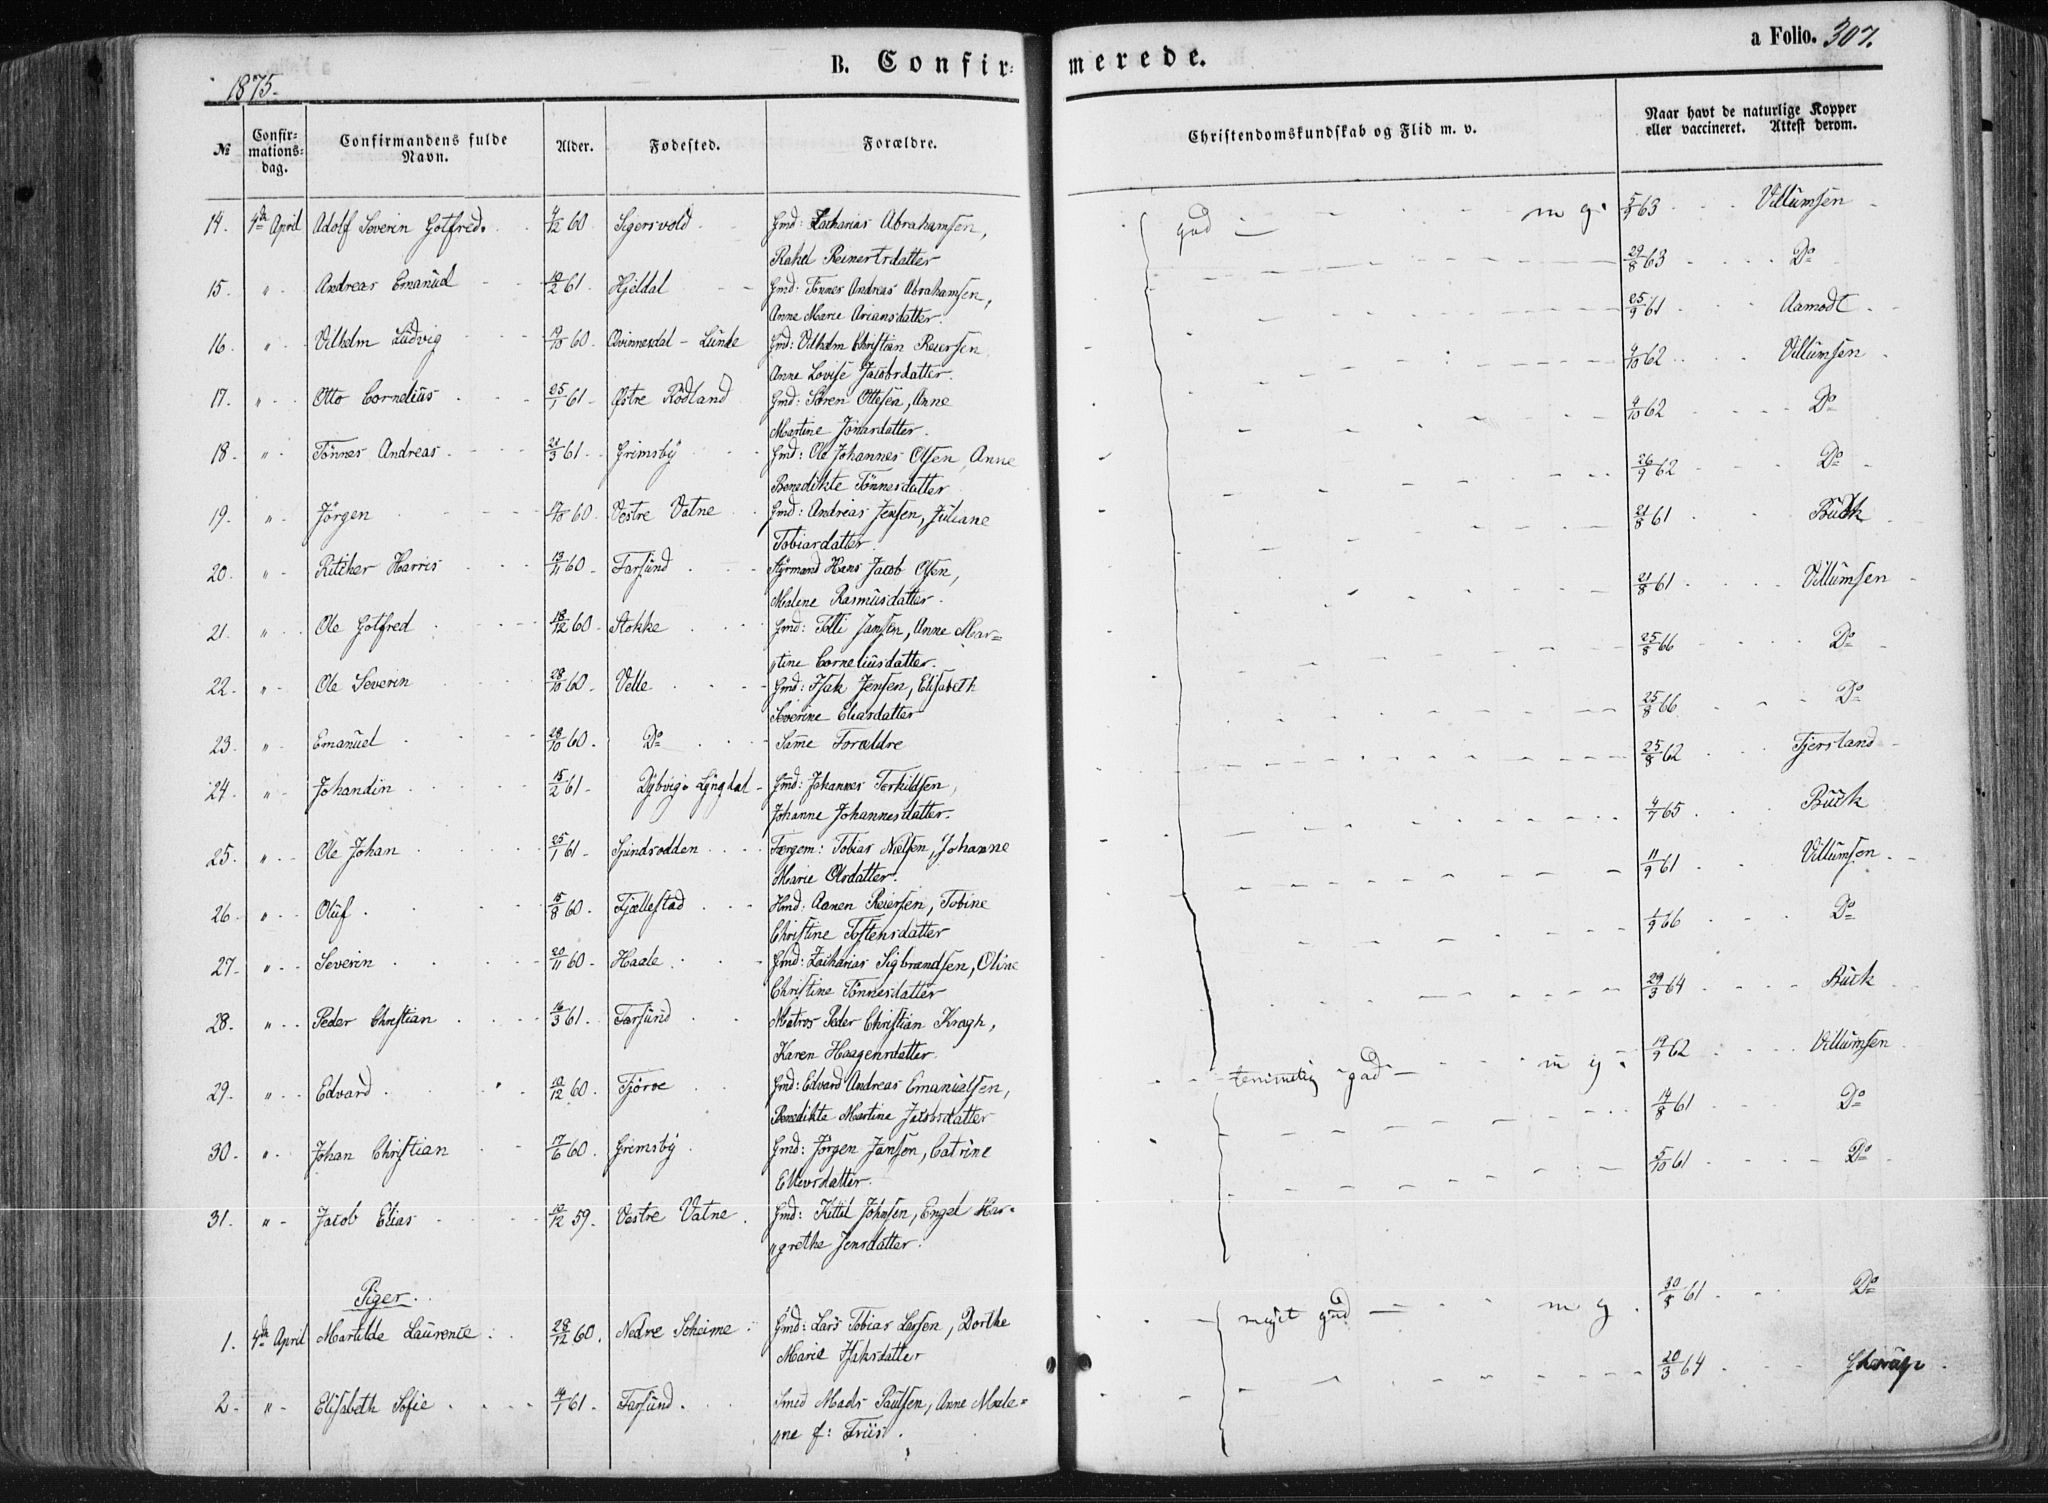 1875.
B. Confirmerede.
a Folio. 307.
№
Confirmationsdag.
Confirmandens fulde Navn.
Alder.
Fødested.
Forældre.
Christendomskundskab og Flid m. v.
Naar havt de naturlige Kopper eller vaccineret. Attest derom.
14. 4de April Adolf Severin Gotfred. 4/12 60 Sigersvold Gmd: Zacharias Abrahamsen, god m g. 5/9 63 Villumsen
Rakel Reinertsdatter
15. " Andreas Emanuel 10/2 61 Hjeldal Gmd: Tønnes Andreas Abrahamsen, 29/8 63 Do
Anne Marie Ariansdatter.
16. " Vilhelm Ludvig 19/10 60 Qvinnesdal - Lunde Gmd: Vilhelm Christian Reiersen 25/9 61 Aamodt
Anne Lovise Jacobsdatter.
17. " Otto Cornelius 25/1 61 Østre Rødland Gmd: Søren Ottesen, Anne 4/10 62 Villumsen
Martine Jonasdatter.
18. " Tønnes Andreas 21/3 61 Grimsby Gmd: Ole Johannes Olsen, Anne 4/10 62 Do
Benedikte Tønnesdatter
19. " Jørgen 60 Vestre Vatne Gmd: Andreas Jensen, Juliane 26/9 62 Do
Tobiasdatter.
20. " Ritcher Harris 13/11 60 Farsund Styrmand Hans Jacob Olsen, 21/8 61 Buck
Malene Rasmusdatter.
21. " Ole Gotfred 18/12 60 Stokke Gmd: Tolli Jansen, Anne Mar= 21/8 61 Villumsen
"tine Corneliusdatter.
22. " Ole Severin 28/10 60 Velle Gmd: Isak Jensen, Elisabeth 25/8 66 Do
Severine Eliasdatter
23. " Emanuel 28/10 60. Do Samme Forældre 25/8 66 Do
24. " Johandin 15/2 61 Dybvig. Lyngdal Gmd: Johannes Terkildsen, 25/8 62 Fjersland
Johanne Johannesdatter.
25. " Ole Johan 25/1 61 Spindsodden Færgem: Tobias Nielsen, Johanne 4/7 65 Buck
Marie Olsdatter.
26. " Oluf 15/8 60. Fjellestad Hmd: Aanen Reiersen, Tobine 11/9 61 Villumsen
Christine Tostensdatter
27. " Severin 20/11 60 Haale Gmd: Zacharias Sigbrandsen, Oline 1/9 66 Do
Christine Tønnesdatter
28. " Peder Christian 16/3 61. Farsund Matros Peder Christian Kragh, 29/3 64 Buck
Karen Haagensdatter
29. " Edvard 10/12 60 Tjørve Gmd: Edvard Andreas Emanuelsen, temmelig god m g. 19/9 62 Villumsen
Benedikte Martine Jacobsdatter
30. " Johan Christian 17/6 60. Grimsby Gmd: Jørgen Jansen, Catrine 14/8 61 Do
Ellevsdatter.
31. " Jacob Elias 10/12 59. Vestre Vatne Gmd: Kittil Johnsen, Engel Mar= 5/10 61 Do
"grethe Jensdatter.
Piger.
1. 4de April Martilde Laurente 28/12 60. Nedre Scheime Gmd: Lars Tobias Larsen, Dorthe meget god m g. 30/8 61 Do
Marie Isaksdatter
2. " Elisabeth Sofie 14/1 61. Farsund. Smed Mads Paulsen, Anne Male= 20/3 64
"ne f: Friis.